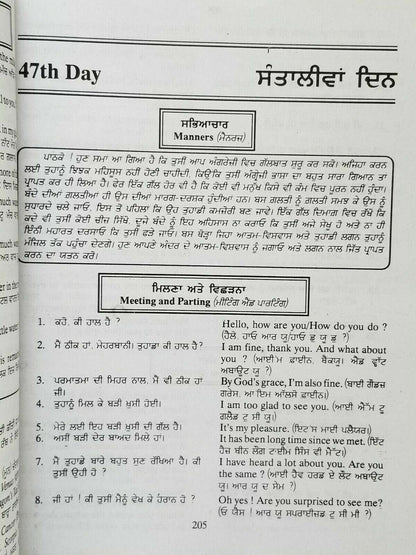 47th Day
ਸੰਤਾਲੀਵਾਂ ਦਿਨ
ਸਭਿਆਚਾਰ
Manners (ਮੈਨਰਜ਼)
ਪਾਠਕੋ ! ਹੁਣ ਸਮਾਂ ਆ ਗਿਆ ਹੈ ਕਿ ਤੁਸੀਂ ਆਪ ਅੰਗਰੇਜ਼ੀ ਵਿਚ ਗੱਲਬਾਤ ਸ਼ੁਰੂ ਕਰ ਸਕੋ। ਅਜਿਹਾ ਕਰਨ
ਲਈ ਤੁਹਾਨੂੰ ਝਿਜਕ ਮਹਿਸੂਸ ਨਹੀਂ ਹੋਣੀ ਚਾਹੀਦੀ, ਕਿਉਂਕਿ ਤੁਸੀਂ ਅੰਗ੍ਰੇਜ਼ੀ ਭਾਸ਼ਾ ਦਾ ਬਹੁਤ ਸਾਰਾ ਗਿਆਨ ਤਾਂ
ਪ੍ਰਾਪਤ ਕਰ ਹੀ ਲਿਆ ਹੈ। ਫੇਰ ਇੱਕ ਗੱਲ ਹੋਰ ਵੀ ਹੈ ਕਿ ਕੋਈ ਵੀ ਮਨੁੱਖ ਕਿਸੇ ਵੀ ਕੰਮ ਵਿਚ ਪੂਰਨ ਨਹੀਂ ਹੁੰਦਾ।
ਬੰਦੇ ਦੀਆਂ ਗਲਤੀਆਂ ਹੀ ਉਸ ਦੀਆਂ ਮਾਰਗ-ਦਰਸ਼ਕ ਹੁੰਦੀਆਂ ਹਨ। ਬਸ ਗਲਤੀ ਨੂੰ ਗਲਤੀ ਸਮਝ ਕੇ ਉਸ ਨੂੰ
ਸੁਧਾਰਦੇ ਚਲੇ ਜਾਣਾ, ਇਸ ਤੋਂ ਪਹਿਲਾਂ ਕਿ ਉਹ ਤੁਹਾਡੀ ਕਮਜ਼ੋਰੀ ਬਣ ਜਾਵੇ। ਇੱਕ ਗੱਲ ਦਿਮਾਗ ਵਿਚ ਰੱਖੋ ਕਿ
ਕਦੇ ਵੀ ਤੁਸੀਂ ਕੋਈ ਚੀਜ਼ ਸਿੱਖੋ, ਦੂਜੇ ਬੰਦੇ ਨੂੰ ਇਹ ਅਹਿਸਾਸ ਨਾ ਕਰਾਓ ਕਿ ਤੁਸੀਂ ਅਜੇ ਸੇਖੂ ਹੋ ਅਤੇ ਨਾ ਹੀ
ਇੰਨੀ ਮਹਾਰਤ ਦਰਸਾਓ ਕਿ ਤੁਸੀਂ ਫੜੇ ਜਾਓ। ਬਸ ਥੋੜ੍ਹਾ ਜਿਹਾ ਆਤਮ-ਵਿਸ਼ਵਾਸ ਅਤੇ ਤੁਹਾਡੀ ਲਗਨ ਤੁਹਾਨੂੰ
ਮੰਜ਼ਿਲ ਤੱਕ ਪਹੁੰਚਾ ਦੇਣਗੇ। ਹੁਣ ਆਪਣੇ ਅੰਦਰ ਦੇ ਆਤਮ-ਵਿਸ਼ਵਾਸ ਨੂੰ ਜਗਾਓ ਅਤੇ ਲਗਨ ਨਾਲ ਜਿੱਤ ਪ੍ਰਾਪਤ
ਕਰਨ ਦਾ ਯਤਨ ਕਰੋ।
ਮਿਲਣਾ ਅਤੇ ਵਿਛੜਨਾ
Meeting and Parting (ਮੀਟਿੰਗ ਐਂਡ ਪਾਰਟਿੰਗ)
1. ਕਹੋ, ਕੀ ਹਾਲ ਹੈ ? Hello, how are you/How do you do ?
(ਹੈਲੋ, ਹਾਓ ਆਰ ਯੂ/ਹਾਓ ਡੂ ਯੂ ਡੂ ?)
2. ਮੈਂ ਠੀਕ ਹਾਂ, ਮੇਹਰਬਾਨੀ। ਤੁਹਾਡਾ ਕੀ ਹਾਲ ਹੈ ? I am fine, thank you. And what about
you ? (ਆਈ'ਮ ਫਾਈਨ, ਥੈਂਕਯੂ। ਐਂਡ ਵ੍ਹਾੱਟ
ਅਬਾਉਟ ਯੂ ?)
3. ਪਰਮਾਤਮਾ ਦੀ ਮਿਹਰ ਨਾਲ, ਮੈਂ ਵੀ ਠੀਕ ਹਾਂ By God's grace, I'm also fine. (ਬਾਈ ਗੌਡਜ਼
ਜੀ। ਗਰੇਸ, ਆ'ਇਮ ਆੱਲਸੋ ਫਾਈਨ।)
4. ਤੁਹਾਨੂੰ ਮਿਲ ਕੇ ਬੜੀ ਖੁਸ਼ੀ ਹੋਈ। I am too glad to see you. (ਆਈ ਐੱਮ ਟੂ
ਗਲੈਡ ਟੂ ਸੀ ਯੂ।)
5. ਮੇਰੇ ਲਈ ਇਹ ਬੜੀ ਖੁਸ਼ੀ ਦੀ ਗੱਲ ਹੈ। It's my pleasure. (ਇਟ'ਸ ਮਾਈ ਪਲੈਯਰ।)
6. ਅਸੀਂ ਬੜੀ ਦੇਰ ਬਾਅਦ ਮਿਲੇ ਹਾਂ। It has been long time since we met. (ਇੱਟ
ਹੈਜ਼ ਬੀਨ ਲੌਂਗ ਟਾਈਮ ਸਿੰਸ ਵੀ ਮੈੱਟ।)
7. ਮੈਂ ਤੁਹਾਡੇ ਬਾਰੇ ਬਹੁਤ ਸੁਣ ਰੱਖਿਆ ਹੈ। ਕੀ I have heard a lot about you. Are you
ਤੁਸੀਂ ਉਹੀ ਹੋ ? the same ? (ਆਈ ਹੈਵ ਹਰਡ ਏ ਲੌਟ ਅਬਾਉਟ
ਯੂ। ਆਰ ਯੂ ਦ ਸੇਮ ?)
8. ਜੀ ਹਾਂ ! ਕੀ ਤੁਸੀਂ ਮੈਨੂੰ ਵੇਖ ਕੇ ਹੈਰਾਨ ਹੋ ? Oh yes ! Are you surprised to see me?
(ਓ ਯੈਸ ! ਆਰ ਯੂ ਸਪਰਾਈਜ਼ਡ ਟੂ ਸੀ ਮੀ ?)
205